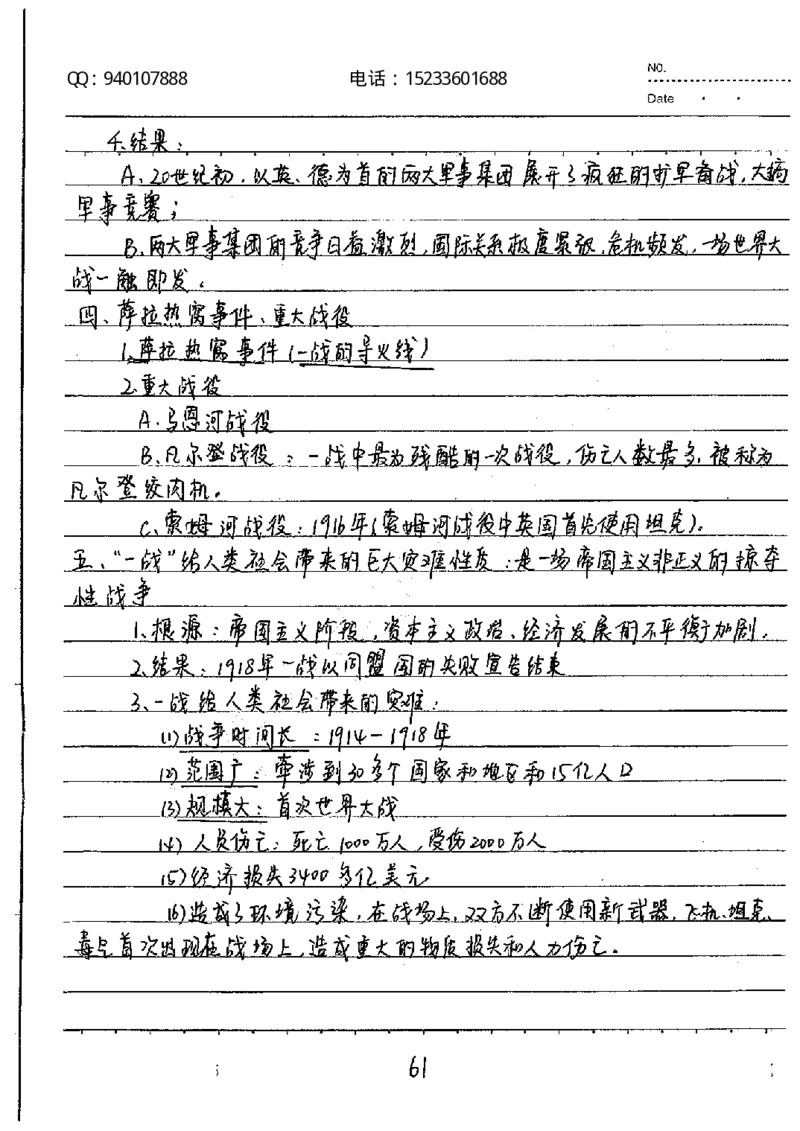 QQ：940107888 电话：15233601688 NO.
Date
4.结果：
A、20世纪初，以英、德为首的两大军事集团展开了疯狂的扩军备战，大搞
军事竞赛；
B、两大军事集团的竞争日益激烈，国际关系极度紧张，危机频发，一场世界大
战一触即发。
四、萨拉热窝事件、重大战役
1、萨拉热窝事件（一战的导火线）
2、重大战役
A.马恩河战役
B、凡尔登战役：一战中最为残酷的一次战役，伤亡人数最多，被称为
凡尔登绞肉机。
C、索姆河战役：1916年（索姆河战役中英国首先使用坦克）。
五、“一战”给人类社会带来的巨大灾难性质：是一场帝国主义非正义的掠夺
性战争
1、根源：帝国主义阶段，资本主义政治、经济发展的不平衡加剧。
2、结果：1918年一战以同盟国的失败宣告结束
3、一战给人类社会带来的灾难：
(1)战争时间长：1914－1918年
(2)范围广：牵涉到30多个国家和地区和15亿人口
(3)规模大：首次世界大战
(4)人员伤亡：死亡1000万人，受伤2000万人
(5)经济损失3400多亿美元
(6)造成了环境污染，在战场上，双方不断使用新武器，飞机、坦克、
毒气首次出现在战场上，造成重大的物质损失和人力伤亡。
61